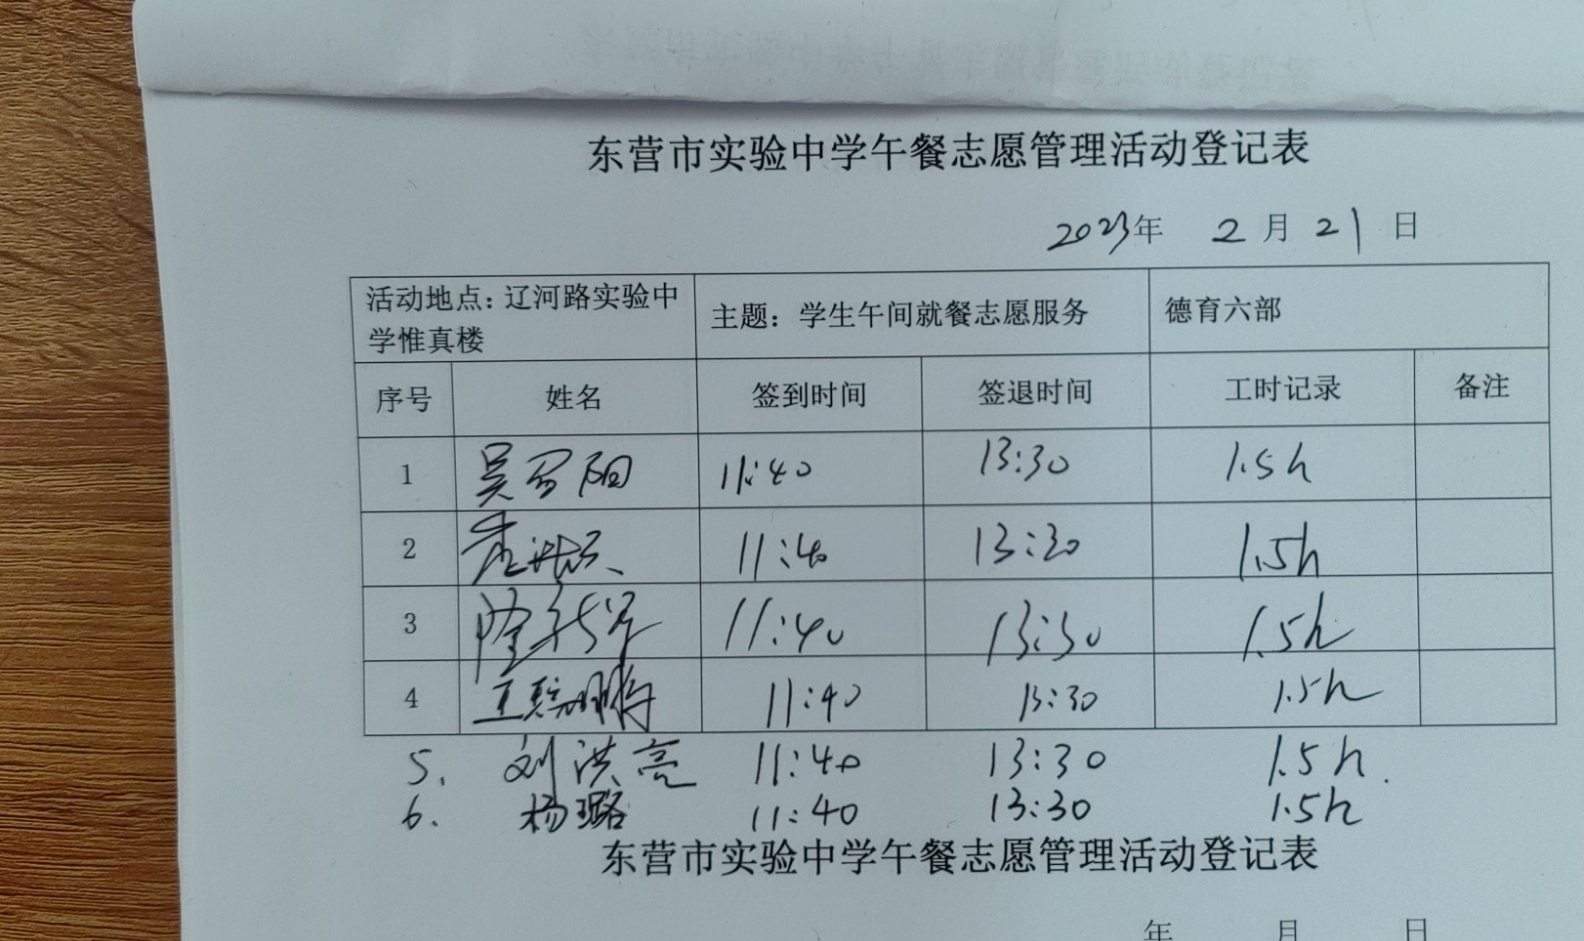 东营市实验中学午餐志愿管理活动登记表
2023年 2月21日
活动地点：辽河路实验中学惟真楼 主题：学生午间就餐志愿服务 德育六部
序号 姓名 签到时间 签退时间 工时记录 备注
1 11:40 13:30 1.5h
2 11:40 13:30 1.5h
3 11:40 13:30 1.5h
4 11:40 13:30 1.5h
5. 刘洪亮 11:40 13:30 1.5h.
6. 杨璐 11:40 13:30 1.5h
东营市实验中学午餐志愿管理活动登记表
年 月 日